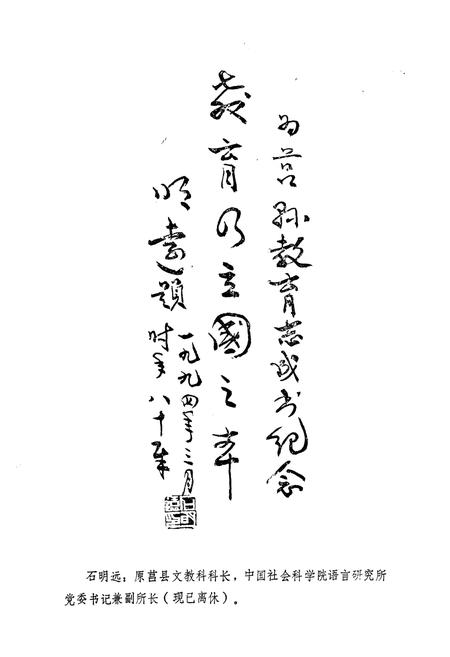 为莒县教育志成书纪念
教育乃立国之本
明远题
一九九四年三月
时年八十岁
石明远：原莒县文教科科长，中国社会科学院语言研究所
党委书记兼副所长（现已离休）。